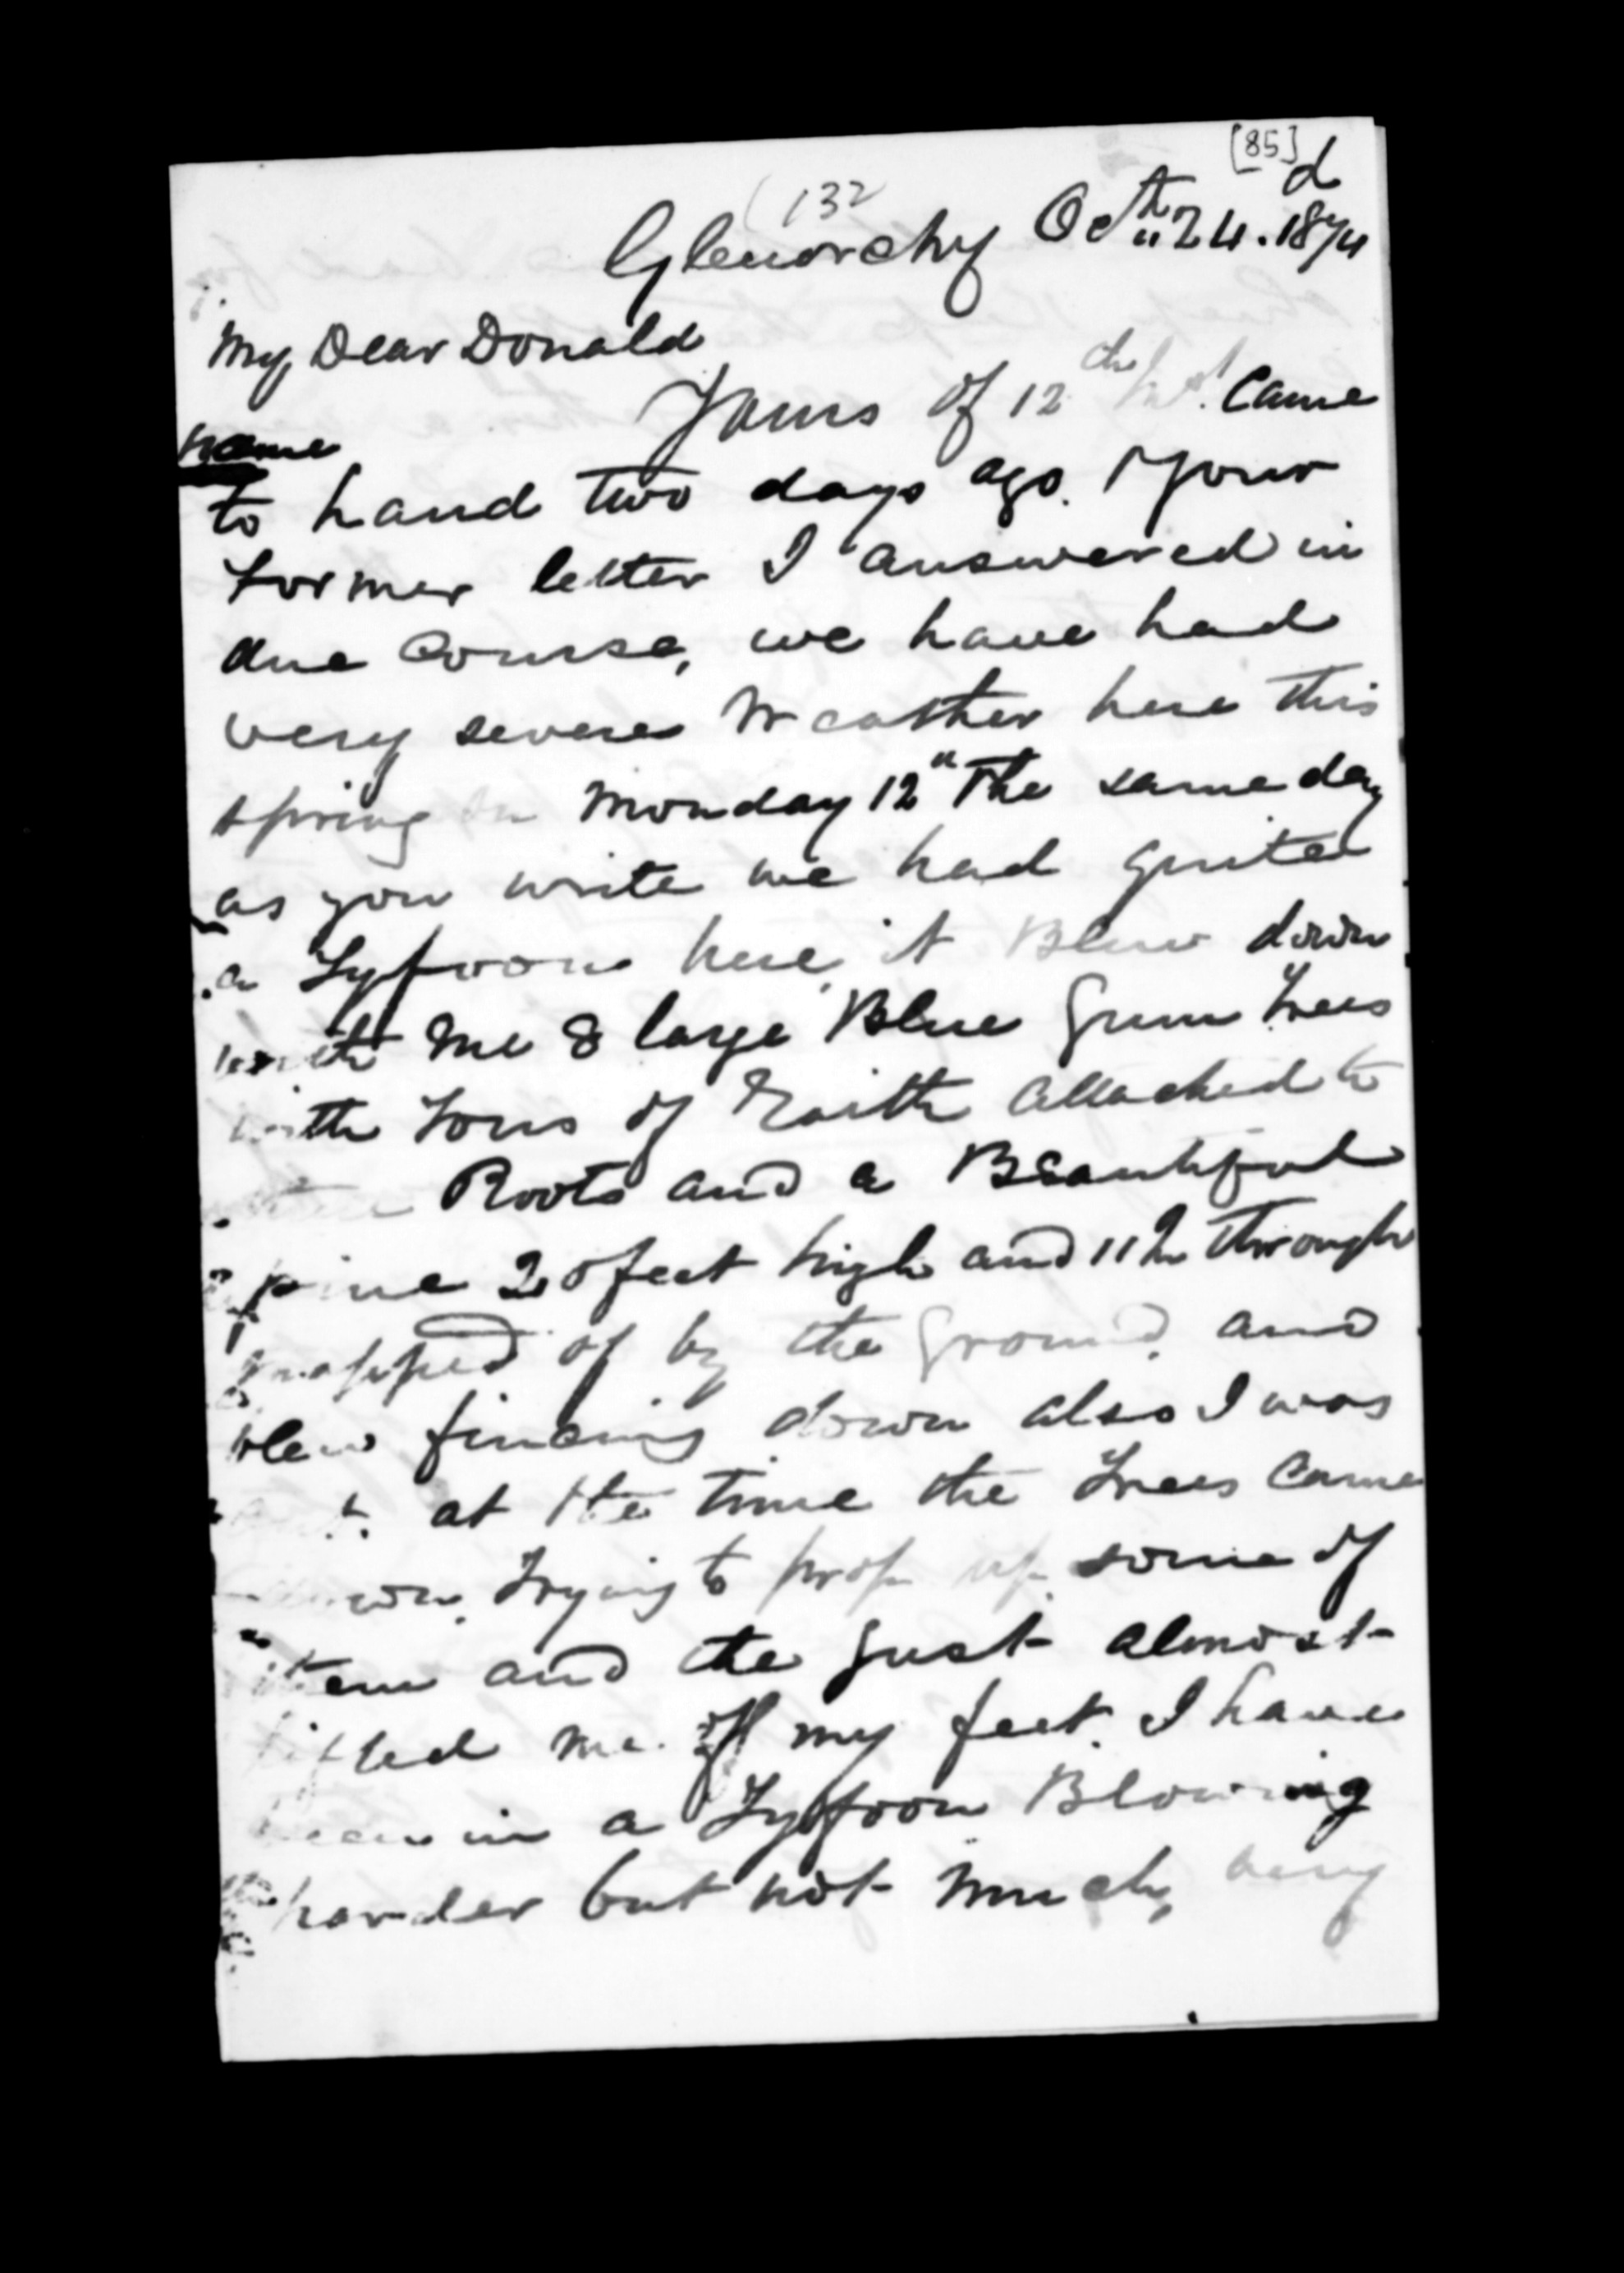 [85]
132 d
Glenorchy Octh 24. 1874
My Dear Donald
Yours of 12th Inst. Came
to hand two days ago. Your
former letter I answered in
due Course, we have had
very severe Weather here this
spring on Monday 12th The same day
as you write we had quite
a Tyfoon here, it Blew down
with me 8 large Blue Gum Trees
with Tons of Earth attached to
Roots and a Beautiful
pine 20 feet high and 11 In through
snapped of by the Ground, and
blew fincing down also I was
at the time the Trees Came
Trying to prop up some of
them and the gust almost
lifted me off my feet. I have
been in a Tyffoon Blowing
harder but not much,